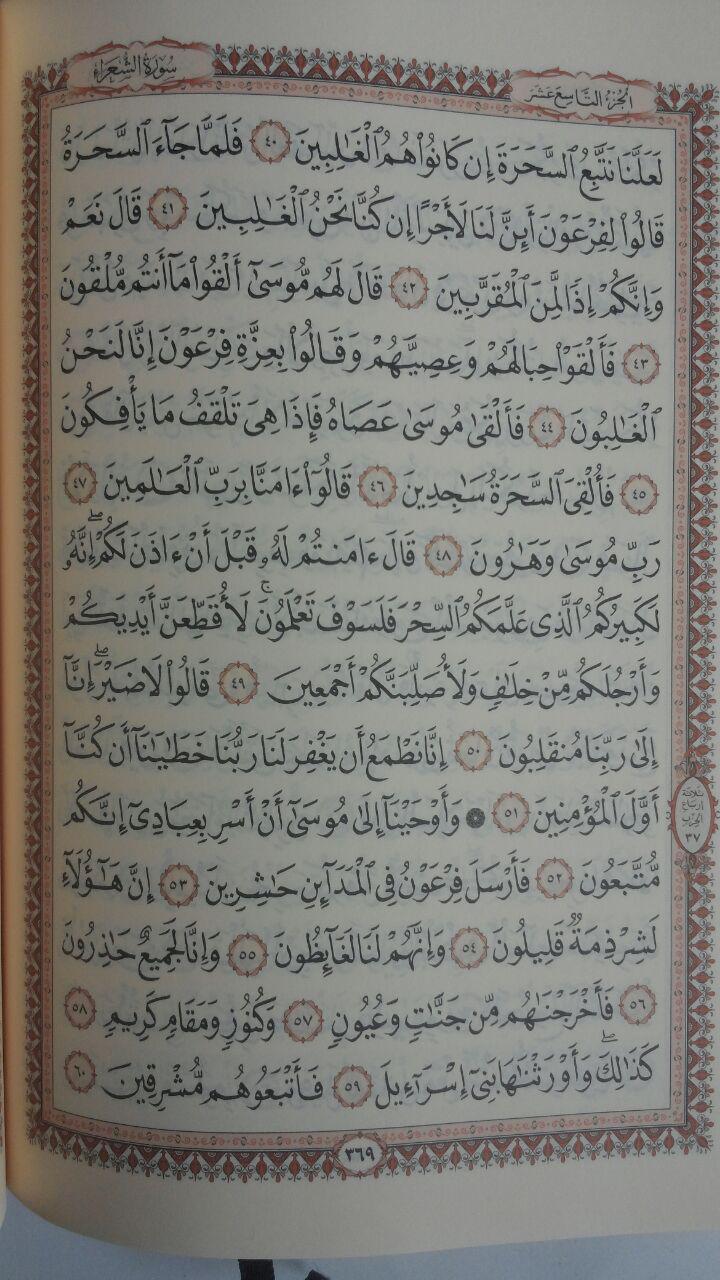 الجزء التاسع عشر
سورة الشعراء
لَعَلَّنَا نَتَّبِعُ ٱلسَّحَرَةَ إِن كَانُوا۟ هُمُ ٱلْغَٰلِبِينَ ٤٠ فَلَمَّا جَآءَ ٱلسَّحَرَةُ
قَالُوا۟ لِفِرْعَوْنَ أَئِنَّ لَنَا لَأَجْرًا إِن كُنَّا نَحْنُ ٱلْغَٰلِبِينَ ٤١ قَالَ نَعَمْ
وَإِنَّكُمْ إِذًا لَّمِنَ ٱلْمُقَرَّبِينَ ٤٢ قَالَ لَهُم مُّوسَىٰٓ أَلْقُوا۟ مَآ أَنتُم مُّلْقُونَ
٤٣ فَأَلْقَوْا۟ حِبَالَهُمْ وَعِصِيَّهُمْ وَقَالُوا۟ بِعِزَّةِ فِرْعَوْنَ إِنَّا لَنَحْنُ
ٱلْغَٰلِبُونَ ٤٤ فَأَلْقَىٰ مُوسَىٰ عَصَاهُ فَإِذَا هِىَ تَلْقَفُ مَا يَأْفِكُونَ
٤٥ فَأُلْقِىَ ٱلسَّحَرَةُ سَٰجِدِينَ ٤٦ قَالُوٓا۟ ءَامَنَّا بِرَبِّ ٱلْعَٰلَمِينَ ٤٧
رَبِّ مُوسَىٰ وَهَٰرُونَ ٤٨ قَالَ ءَامَنتُمْ لَهُۥ قَبْلَ أَنْ ءَاذَنَ لَكُمْ ۖ إِنَّهُۥ
لَكَبِيرُكُمُ ٱلَّذِى عَلَّمَكُمُ ٱلسِّحْرَ فَلَسَوْفَ تَعْلَمُونَ ۚ لَأُقَطِّعَنَّ أَيْدِيَكُمْ
وَأَرْجُلَكُم مِّنْ خِلَٰفٍ وَلَأُصَلِّبَنَّكُمْ أَجْمَعِينَ ٤٩ قَالُوا۟ لَا ضَيْرَ ۖ إِنَّآ
إِلَىٰ رَبِّنَا مُنقَلِبُونَ ٥٠ إِنَّا نَطْمَعُ أَن يَغْفِرَ لَنَا رَبُّنَا خَطَٰيَٰنَآ أَن كُنَّآ
أَوَّلَ ٱلْمُؤْمِنِينَ ٥١ ۞ وَأَوْحَيْنَآ إِلَىٰ مُوسَىٰٓ أَنْ أَسْرِ بِعِبَادِىٓ إِنَّكُم
مُّتَّبَعُونَ ٥٢ فَأَرْسَلَ فِرْعَوْنُ فِى ٱلْمَدَآئِنِ حَٰشِرِينَ ٥٣ إِنَّ هَٰٓؤُلَآءِ
لَشِرْذِمَةٌ قَلِيلُونَ ٥٤ وَإِنَّهُمْ لَنَا لَغَآئِظُونَ ٥٥ وَإِنَّا لَجَمِيعٌ حَٰذِرُونَ
٥٦ فَأَخْرَجْنَٰهُم مِّن جَنَّٰتٍ وَعُيُونٍ ٥٧ وَكُنُوزٍ وَمَقَامٍ كَرِيمٍ ٥٨
كَذَٰلِكَ ۖ وَأَوْرَثْنَٰهَا بَنِىٓ إِسْرَٰٓءِيلَ ٥٩ فَأَتْبَعُوهُم مُّشْرِقِينَ ٦٠
ثلاثة
أرباع
الحزب
٣٧
٣٦٩